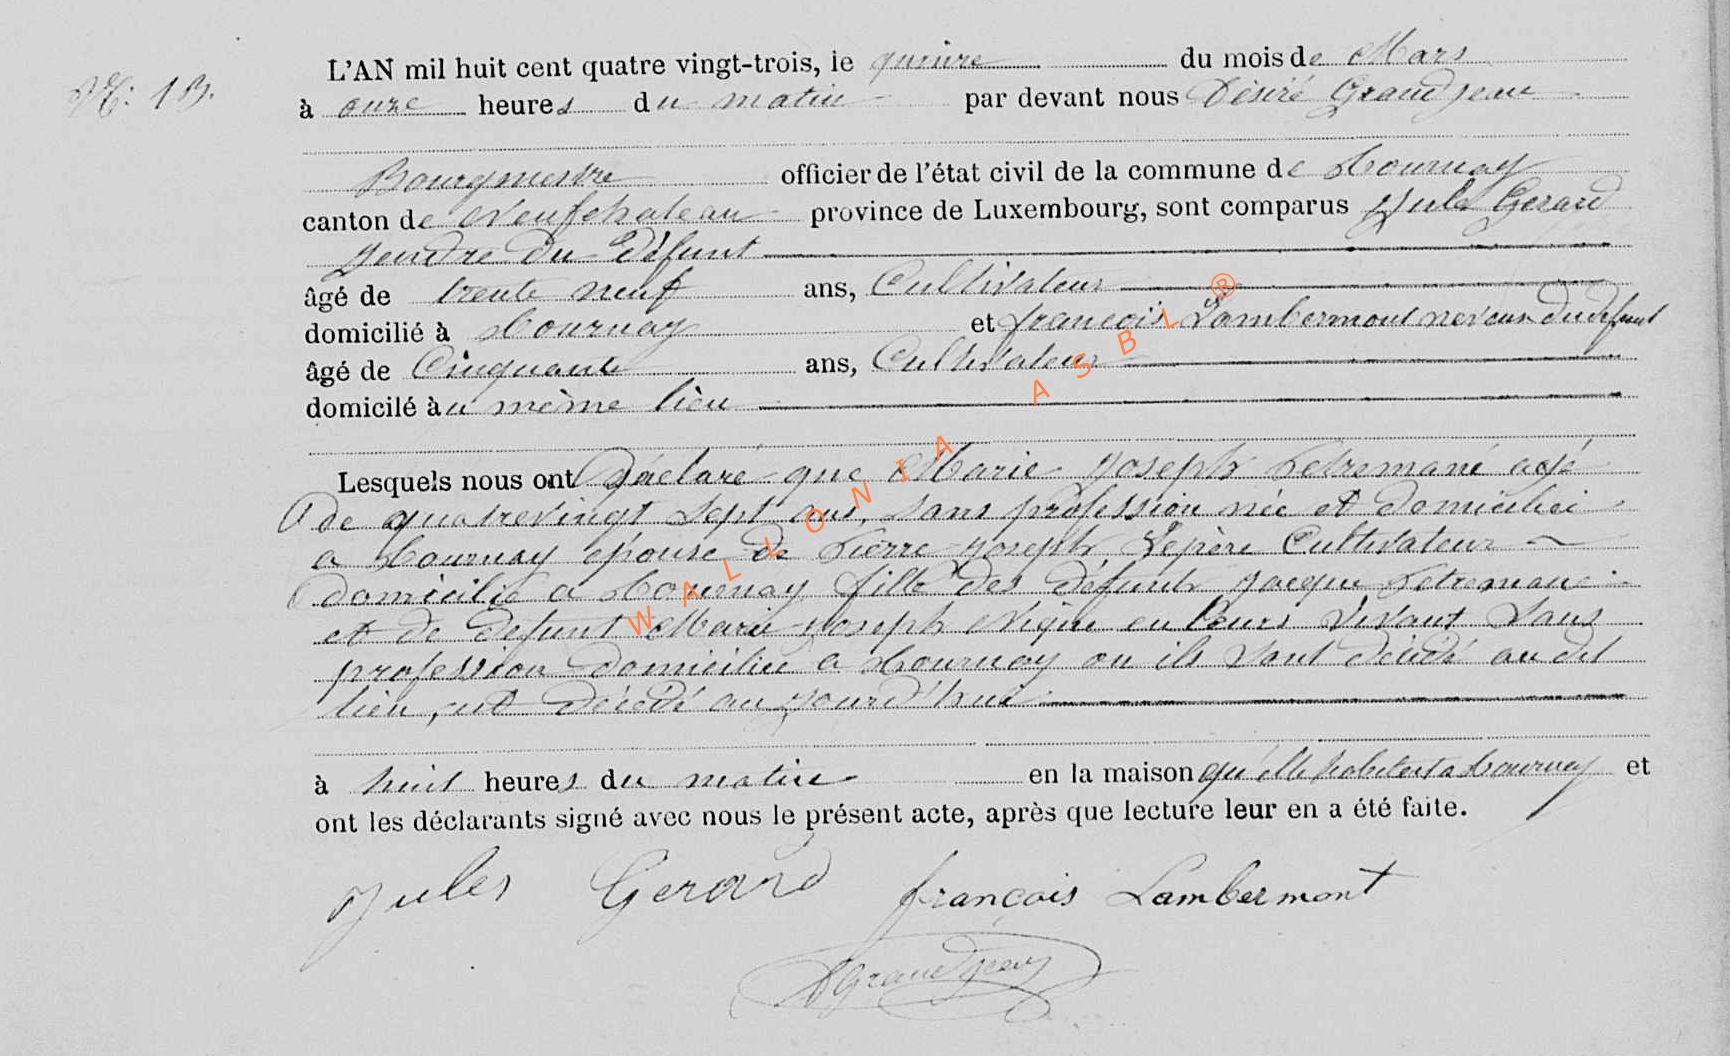 N: 13.
L'AN mil huit cent quatre vingt-trois, le quinze du mois de Mars
à onze heures du matin par devant nous Désiré Grandjean
Bourgmestre officier de l'état civil de la commune de Tournay
canton de Neufchateau province de Luxembourg, sont comparus Jule Gerard
gendre du défunt
âgé de trente neuf ans, Cultivateur
domicilié à Tournay et françois Lambermont neveux du defunt
âgé de Cinquante ans, Cultivateur
domicilé àu même lieu
Lesquels nous ont Déclaré que Marie Joseph agé
de quatrevingt sept ans, sans profession née et domiciliée
a Tournay épouse de Pierre Joseph Lepère Cultivateur
domicilié a Tournay fille des défunts Jacque
et de defunt Marie Joseph en leurs vivant sans
profession domiciliée a Tournay ou ils sont décédé au dit
lieu, est décédé aujourd'hui
à huit heures du matin en la maison qu'elle habitait a Tournay et
ont les déclarants signé avec nous le présent acte, après que lecture leur en a été faite.
Jules Gerard françois Lambermont
DGrandjean
WALLONIA ASBL ®